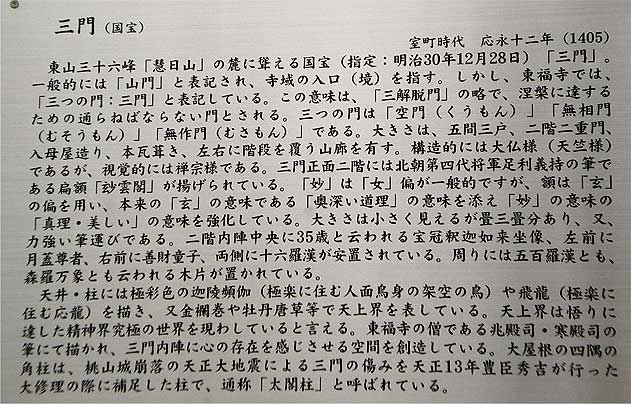 三門（国宝）
室町時代　応永十二年（1405）
東山三十六峰「慧日山」の麓に聳える国宝（指定：明治30年12月28日）「三門」。
一般的には「山門」と表記され、寺域の入口（境）を指す。しかし、東福寺では、
「三つの門：三門」と表記している。この意味は、「三解脱門」の略で、涅槃に達する
ための通らねばならない門とされる。三つの門は「空門（くうもん）」「無相門
（むそうもん）」「無作門（むさもん）」である。大きさは、五間三戸、二階二重門、
入母屋造り、本瓦葺き、左右に階段を覆う山廊を有す。構造的には大仏様（天竺様）
であるが、視覚的には禅宗様である。三門正面二階には北朝第四代将軍足利義持の筆で
ある扁額「玅雲閣」が揚げられている。「妙」は「女」偏が一般的ですが、額は「玄」
の偏を用い、本来の「玄」の意味である「奥深い道理」の意味を添え「妙」の意味の
「真理・美しい」の意味を強化している。大きさは小さく見えるが畳三畳分あり、又、
力強い筆運びである。二階内陣中央に35歳と云われる宝冠釈迦如来坐像、左前に
月蓋尊者、右前に善財童子、両側に十六羅漢が安置されている。周りには五百羅漢とも、
森羅万象とも云われる木片が置かれている。
天井・柱には極彩色の迦陵頻伽（極楽に住む人面鳥身の架空の鳥）や飛龍（極楽に
住む応龍）を描き、又金襴巻や牡丹唐草等で天上界を表している。天上界は悟りに
達した精神界究極の世界を現わしていると言える。東福寺の僧である兆殿司・寒殿司の
筆にて描かれ、三門内陣に心の存在を感じさせる空間を創造している。大屋根の四隅の
角柱は、桃山城崩落の天正大地震による三門の傷みを天正13年豊臣秀吉が行った
大修理の際に補足した柱で、通称「太閤柱」と呼ばれている。